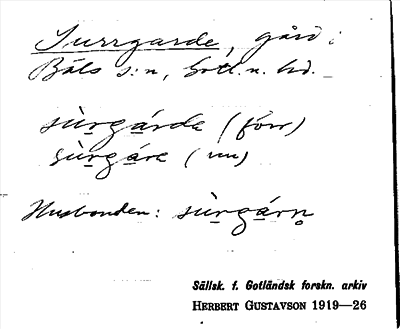 Surrgarde, gård i
Bäls s:n, Gotl. n. hd.
sùrgárde (förr)
sùrgáre (nu)
Husbonden: sùrgárn̥
Sällsk. f. Gotländsk forskn. arkiv
HERBERT GUSTAVSON 1919—26